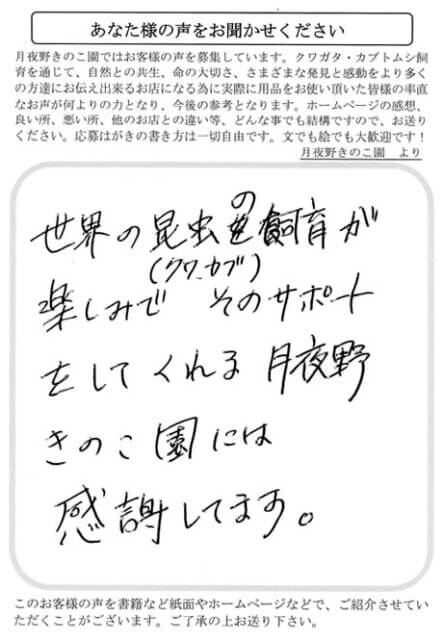 あなた様の声をお聞かせください
月夜野きのこ園ではお客様の声を募集しています。クワガタ・カブトムシ飼
育を通じて、自然との共生、命の大切さ、さまざまな発見と感動をより多く
の方達にお伝え出来るお店になる為に実際に用品をお使い頂いた皆様の率直
なお声が何よりの力となり、今後の参考となります。ホームページの感想、
良い所、悪い所、他のお店との違い等、どんな事でも結構ですので、お送り
ください。応募はがきの書き方は一切自由です。文でも絵でも大歓迎です！
月夜野きのこ園 より
世界の昆虫の飼育が
(クワ.カブ)
楽しみで そのサポート
をしてくれる月夜野
きのこ園には
感謝してます。
このお客様の声を書籍など紙面やホームページなどで、ご紹介させてい
ただくことがございます。ご了承の上お送り下さい。